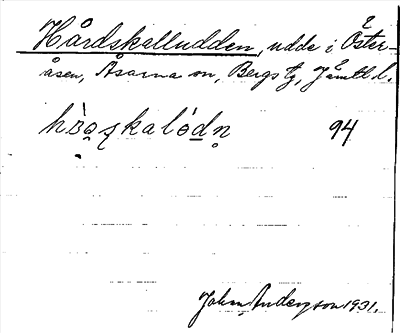 Hårdskalludden, udde i Öster-
åsen, Åsarna sn, Bergs tg, Jämtl l.
94
Johan Anderson 1931.